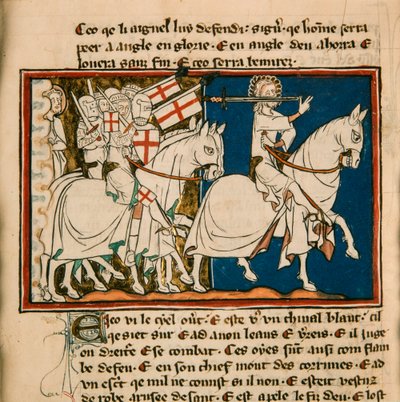 Ceo qe li aignel luy defendi: sign̄. qe home serra
peer a angle en glorie. E en angle deu ahorra E
louera sanz fin. E ceo serra
Eco vi le cyel ou̓t. E este vn chiual blanc. cil
qe siet sur E ad anon leaus E v̓reis. E il iuge
en dreite E se combat. Ces oyes sūt ausi com flam
be de feu. E en son chief mout des corūnes. E ad
vn escit qe nul ne conust si il non. E esteit vestuz
de robe arusee de sanc. E est apele le fiz deu. E lost